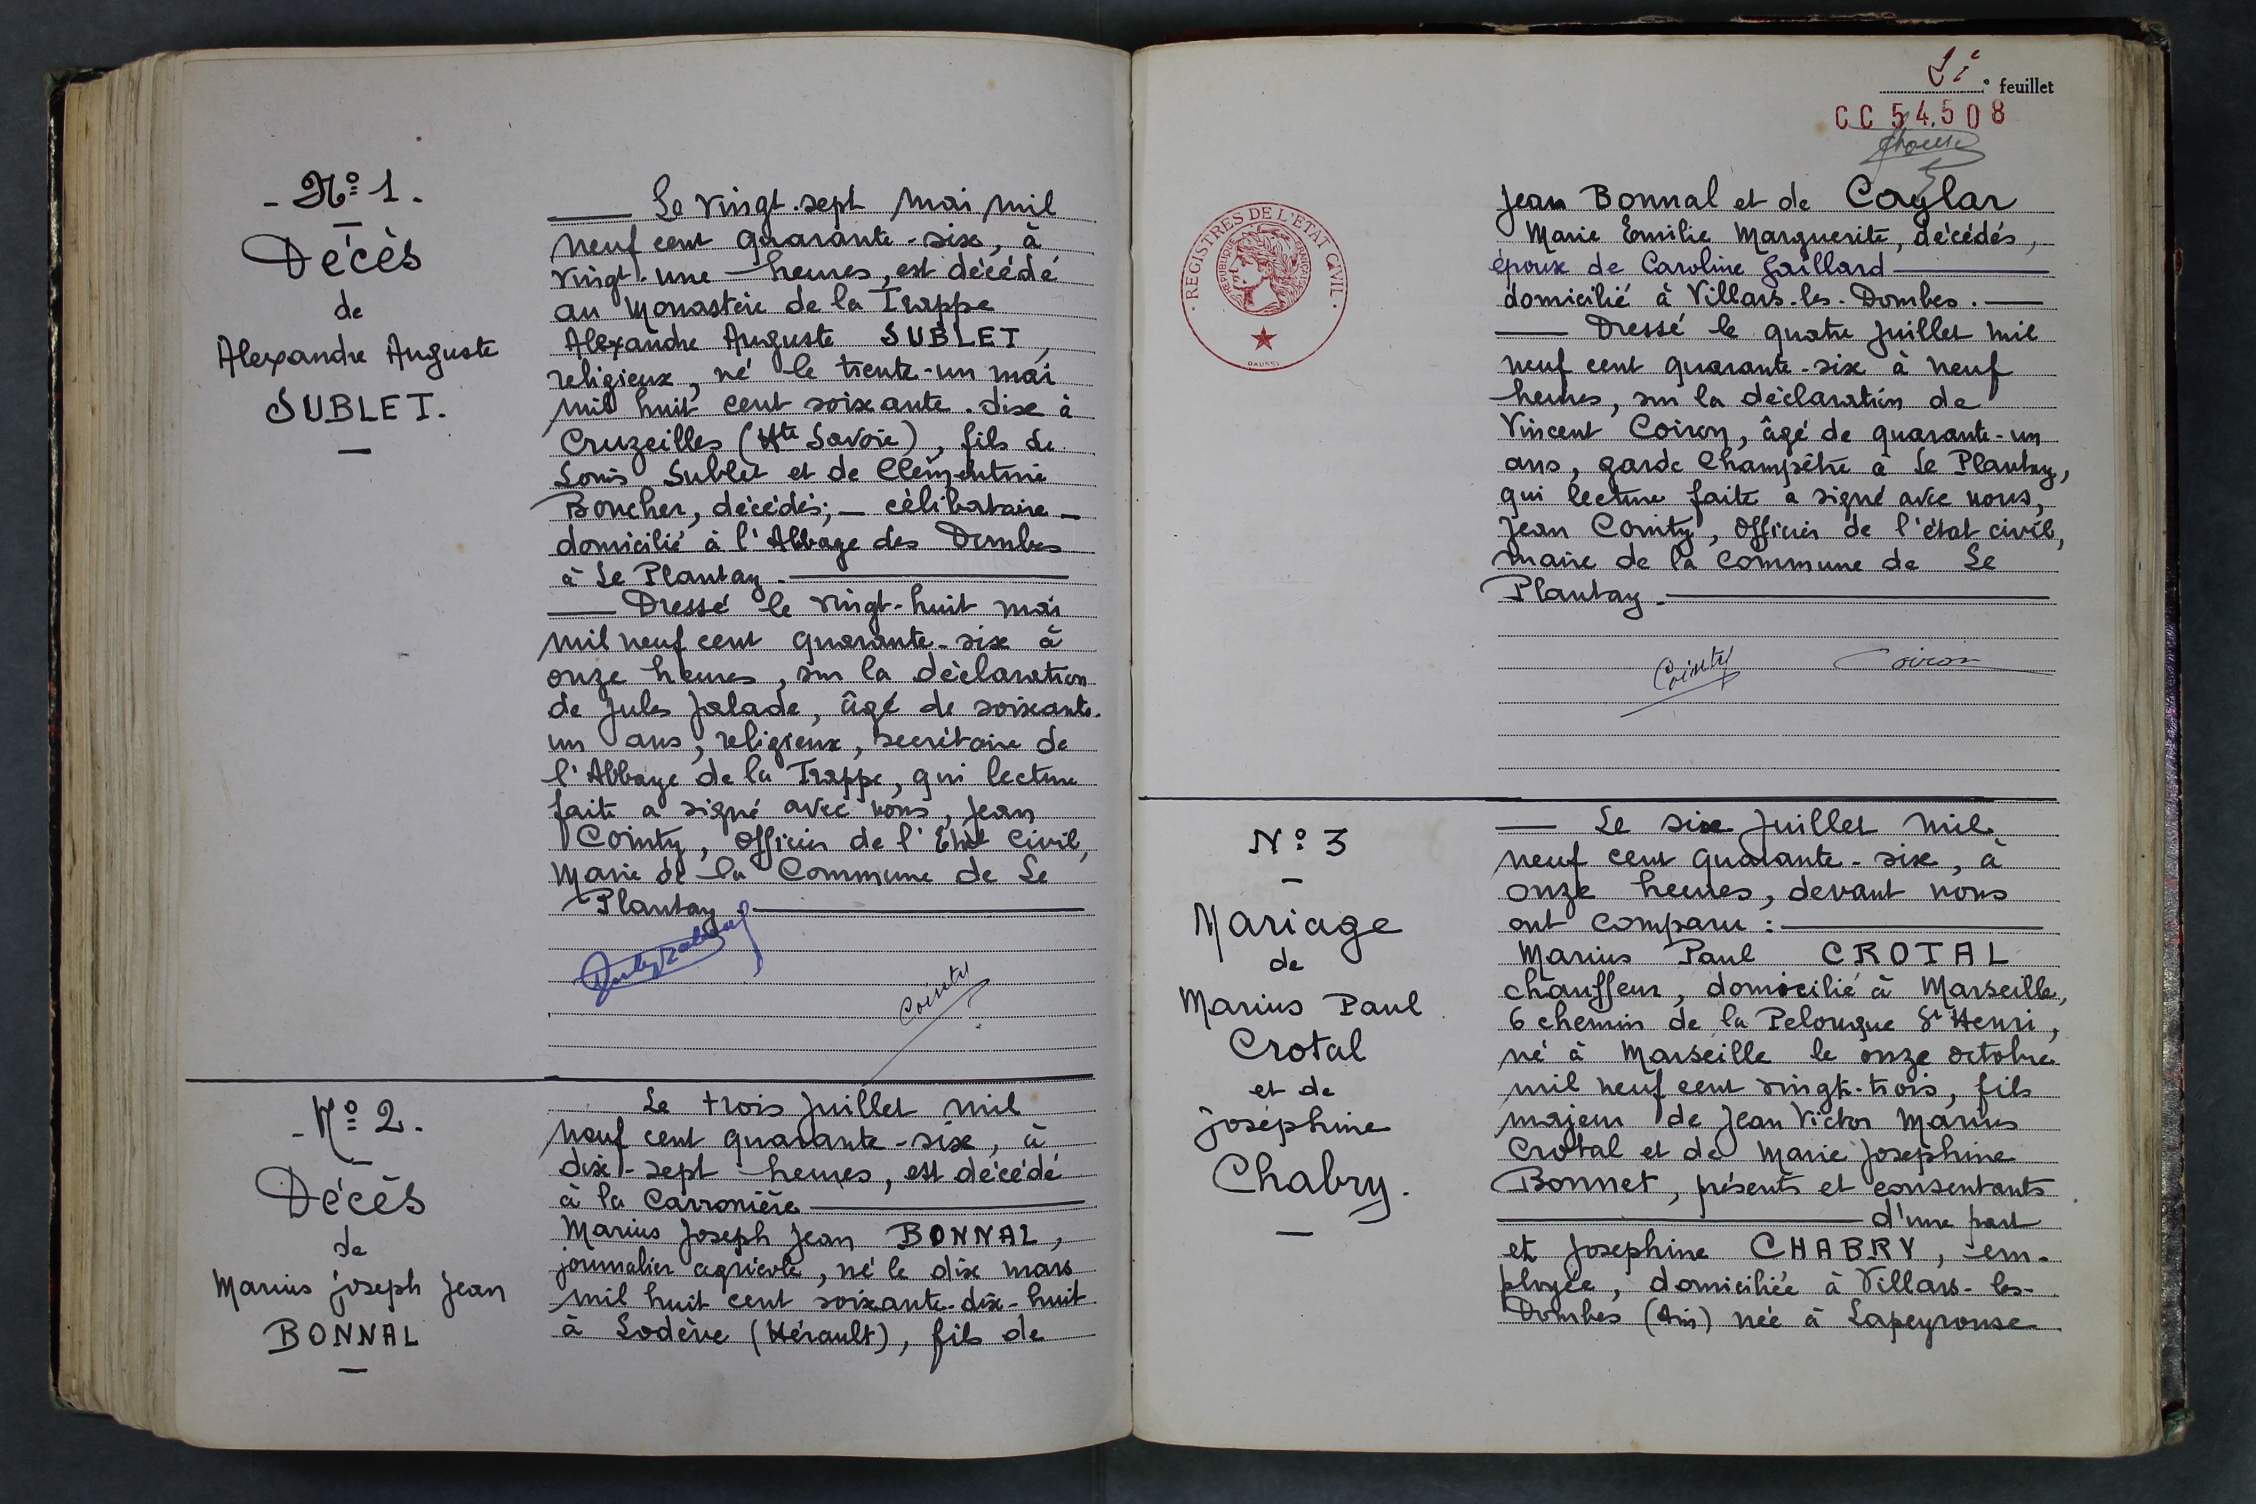 - N° 1 -
Décès
de
Alexandre Auguste
SUBLET.
Le vingt-sept mai mil
neuf cent quarante-six, à
vingt-une heures, est décédé
au Monastère de la Trappe
Alexandre Auguste SUBLET,
religieux, né le trente-un mai
mil huit cent soixante-dix à
Cruzeilles (Hte Savoie), fils de
Louis Sublet et de Clémentine
Boucher, décédés; - célibataire -
domicilié à l'Abbaye des Dombes
à Le Plantay.
Dressé le vingt-huit mai
mil neuf cent quarante-six à
onze heures, sur la déclaration
de Jules Jalade, âgé de soixante-
un ans, religieux, secrétaire de
l'Abbaye de la Trappe, qui lecture
faite a signé avec nous, Jean
Cointy, officier de l'Etat Civil,
Maire de la Commune de Le
Plantay.
Cointy
- N° 2 -
Décès
de
Marius Joseph Jean
BONNAL
Le trois Juillet mil
neuf cent quarante-six, à
dix-sept heures, est décédé
à la Carronière
Marius Joseph Jean BONNAL,
journalier agricole, né le dix mars
mil huit cent soixante-dix-huit
à Lodève (Hérault), fils de
feuillet
CC 54.508
REGISTRES DE L'ETAT CIVIL
REPUBLIQUE FRANCAISE
DAUSSY
Jean Bonnal et de Caylar
Marie Emilie Marguerite, décédés,
époux de Caroline Gaillard
domicilié à Villars-les-Dombes.
Dressé le quatre Juillet mil
neuf cent quarante-six à neuf
heures, sur la déclaration de
Vincent Coiron, âgé de quarante-un
ans, garde Champêtre à Le Plantay,
qui lecture faite a signé avec nous,
Jean Cointy, Officier de l'état civil,
maire de la commune de Le
Plantay.
Cointy Coiron
N° 3
Mariage
de
Marius Paul
Crotal
et de
Joséphine
Chabry.
Le six Juillet mil
neuf cent quarante-six, à
onze heures, devant nous
ont comparu :
Marius Paul CROTAL
chauffeur, domicilié à Marseille,
6 chemin de la Pelouque St Henri,
né à Marseille le onze octobre
mil neuf cent vingt-trois, fils
majeur de Jean Victor Marius
Crotal et de Marie Joséphine
Bonnet, présents et consentants
d'une part
et Josephine CHABRY, em-
ployée, domiciliée à Villars-les-
Dombes (Ain) née à Lapeyrouse